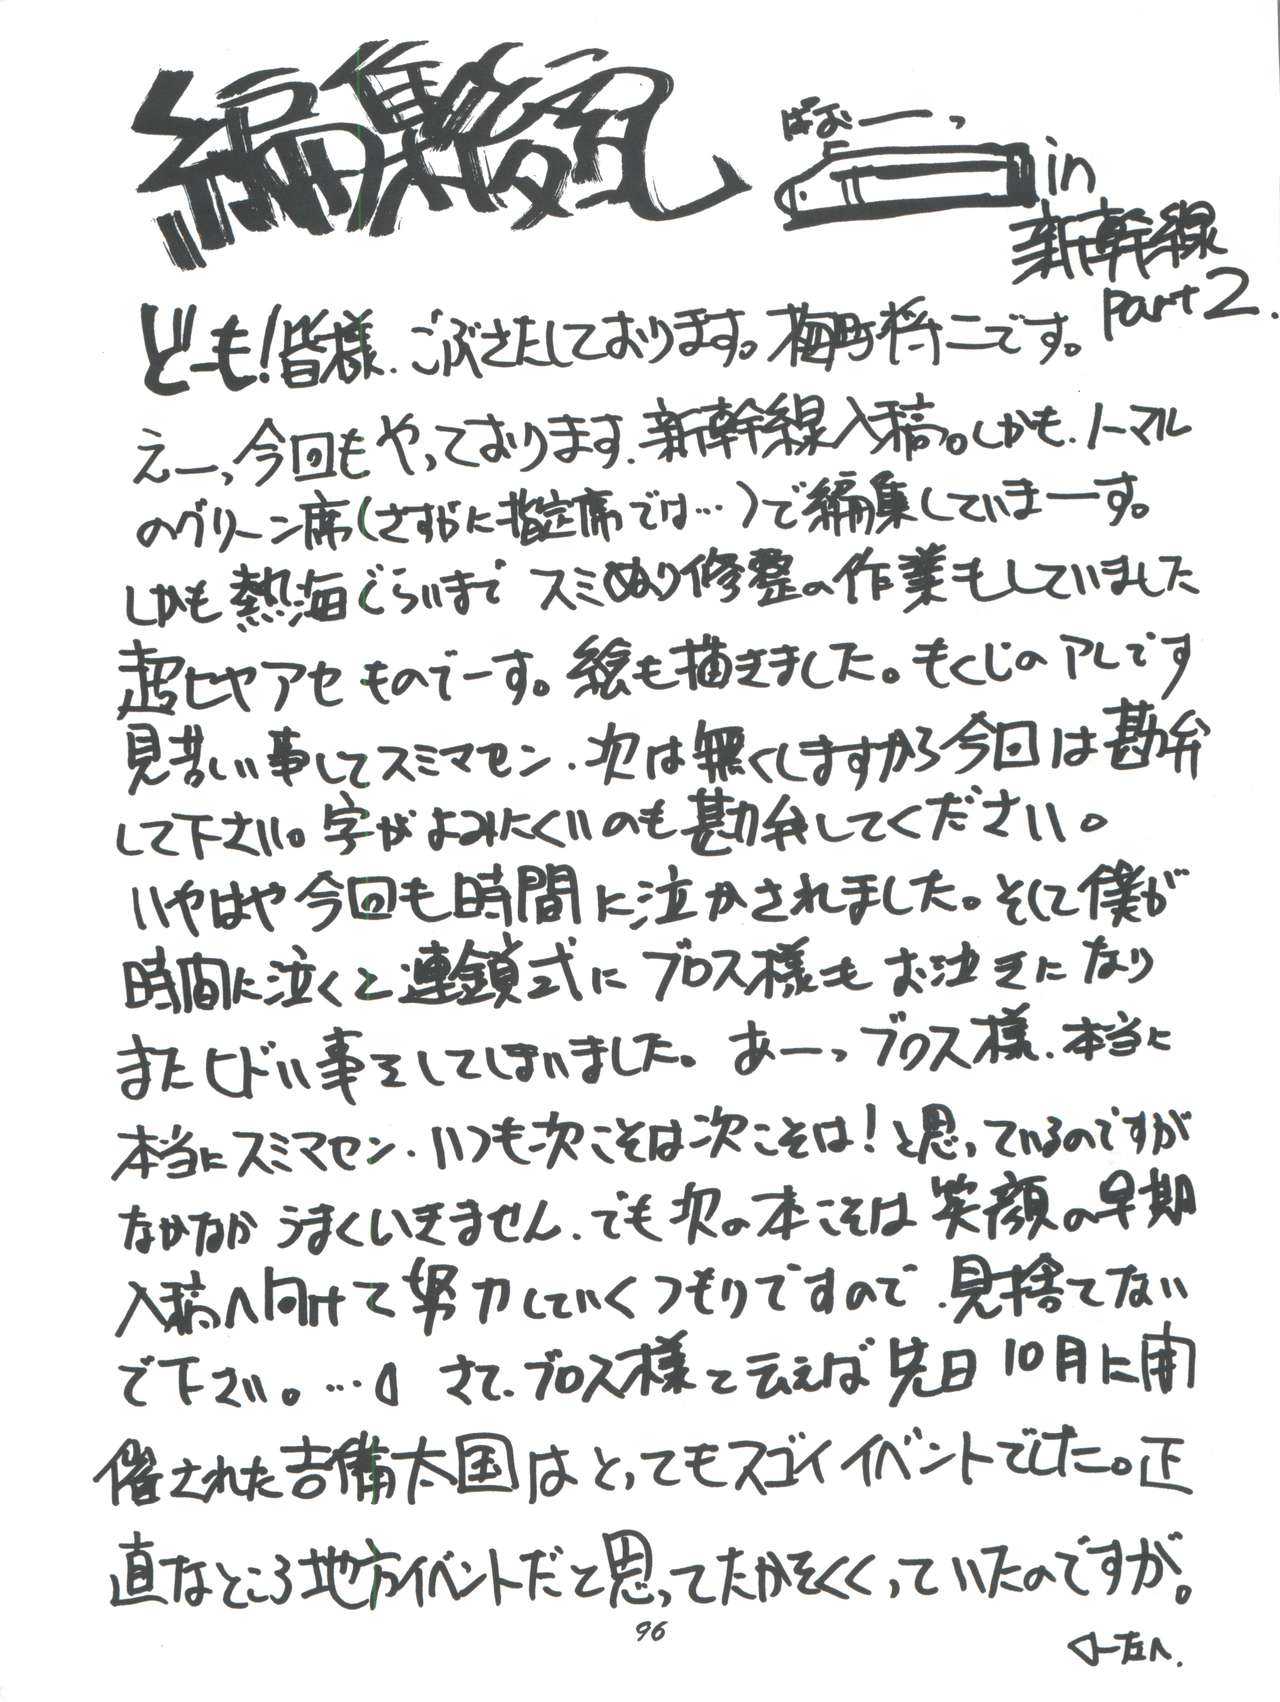 編集後記
ぱおーーっ
in
新幹線
part 2.
どーも!皆様.ごぶさたしております。梅町将二です。
えーっ今回もやっております.新幹線入稿。しかも.ノーマル
のグリーン席(さすがに指定席では…)で編集していまーす。
しかも熱海ぐらいまでスミぬり修整の作業もしていました
超ヒヤアセものでーす。絵も描きました。もくじのアレです
見苦しい事してスミマセン.次は無くしますから今回は勘弁
して下さい。字がよみにくいのも勘弁してください。
いやはや今回も時間に泣かされました。そして僕が
時間に泣くと連鎖式にブロス様もお泣きになり
またヒドい事をしてしまいました。あーっブロス様.本当に
本当にスミマセン.いつも次こそは次こそは!と思っているのですが
なかなかうまくいきません.でも次の本こそは笑顔の早期
入稿へ向けて努力していくつもりですので.見捨てない
で下さい。… さて.ブロス様と云えば先日10月に開
催された吉備太国はとってもスゴイイベントでした。正
直なところ地方イベントだと思ってたかをくくっていたのですが。
96
←左へ.